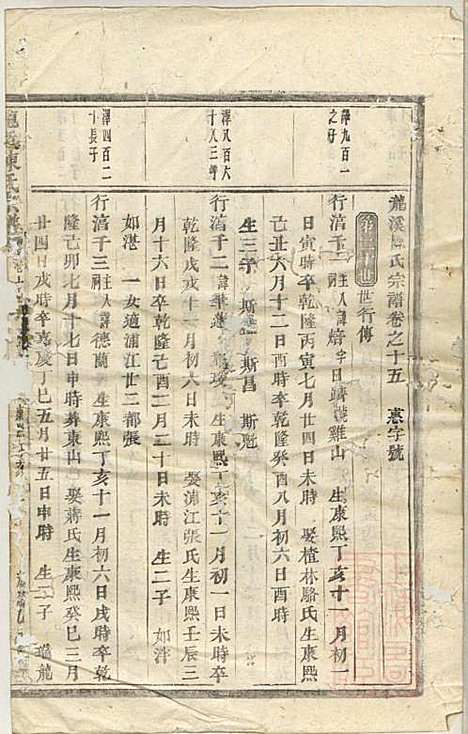 龍溪陳氏宗譜卷之十五　惠字號
世行傳
澤九百一之子
行濇千一　主人諱焙字日躋號雞山　生康熙丁亥十一月初一
日寅時卒乾隆丙寅七月廿四日未時　娶楂林駱氏生康熙
己丑六月十二日酉時卒乾隆癸酉八月初六日酉時
生三子　斯　斯昌　斯
澤八百六十人三
行濇千二　諱　生康熙丁亥十一月初一日未時卒
乾隆戊戌十二月初六日未時　娶浦江張氏生康熙壬辰三
月十六日卒乾隆己酉二月二十日未時　生二子　如泮
如湛　一女適浦江廿二都張
澤四百二十長子
行濇千三　主人諱德蘭　生康熙丁亥十一月初六日戌時卒乾
隆己卯七月十七日申時葬東山　娶蔣氏生康熙癸巳三月
廿四日戌時卒嘉慶丁巳五月廿五日申時　生二子　龍